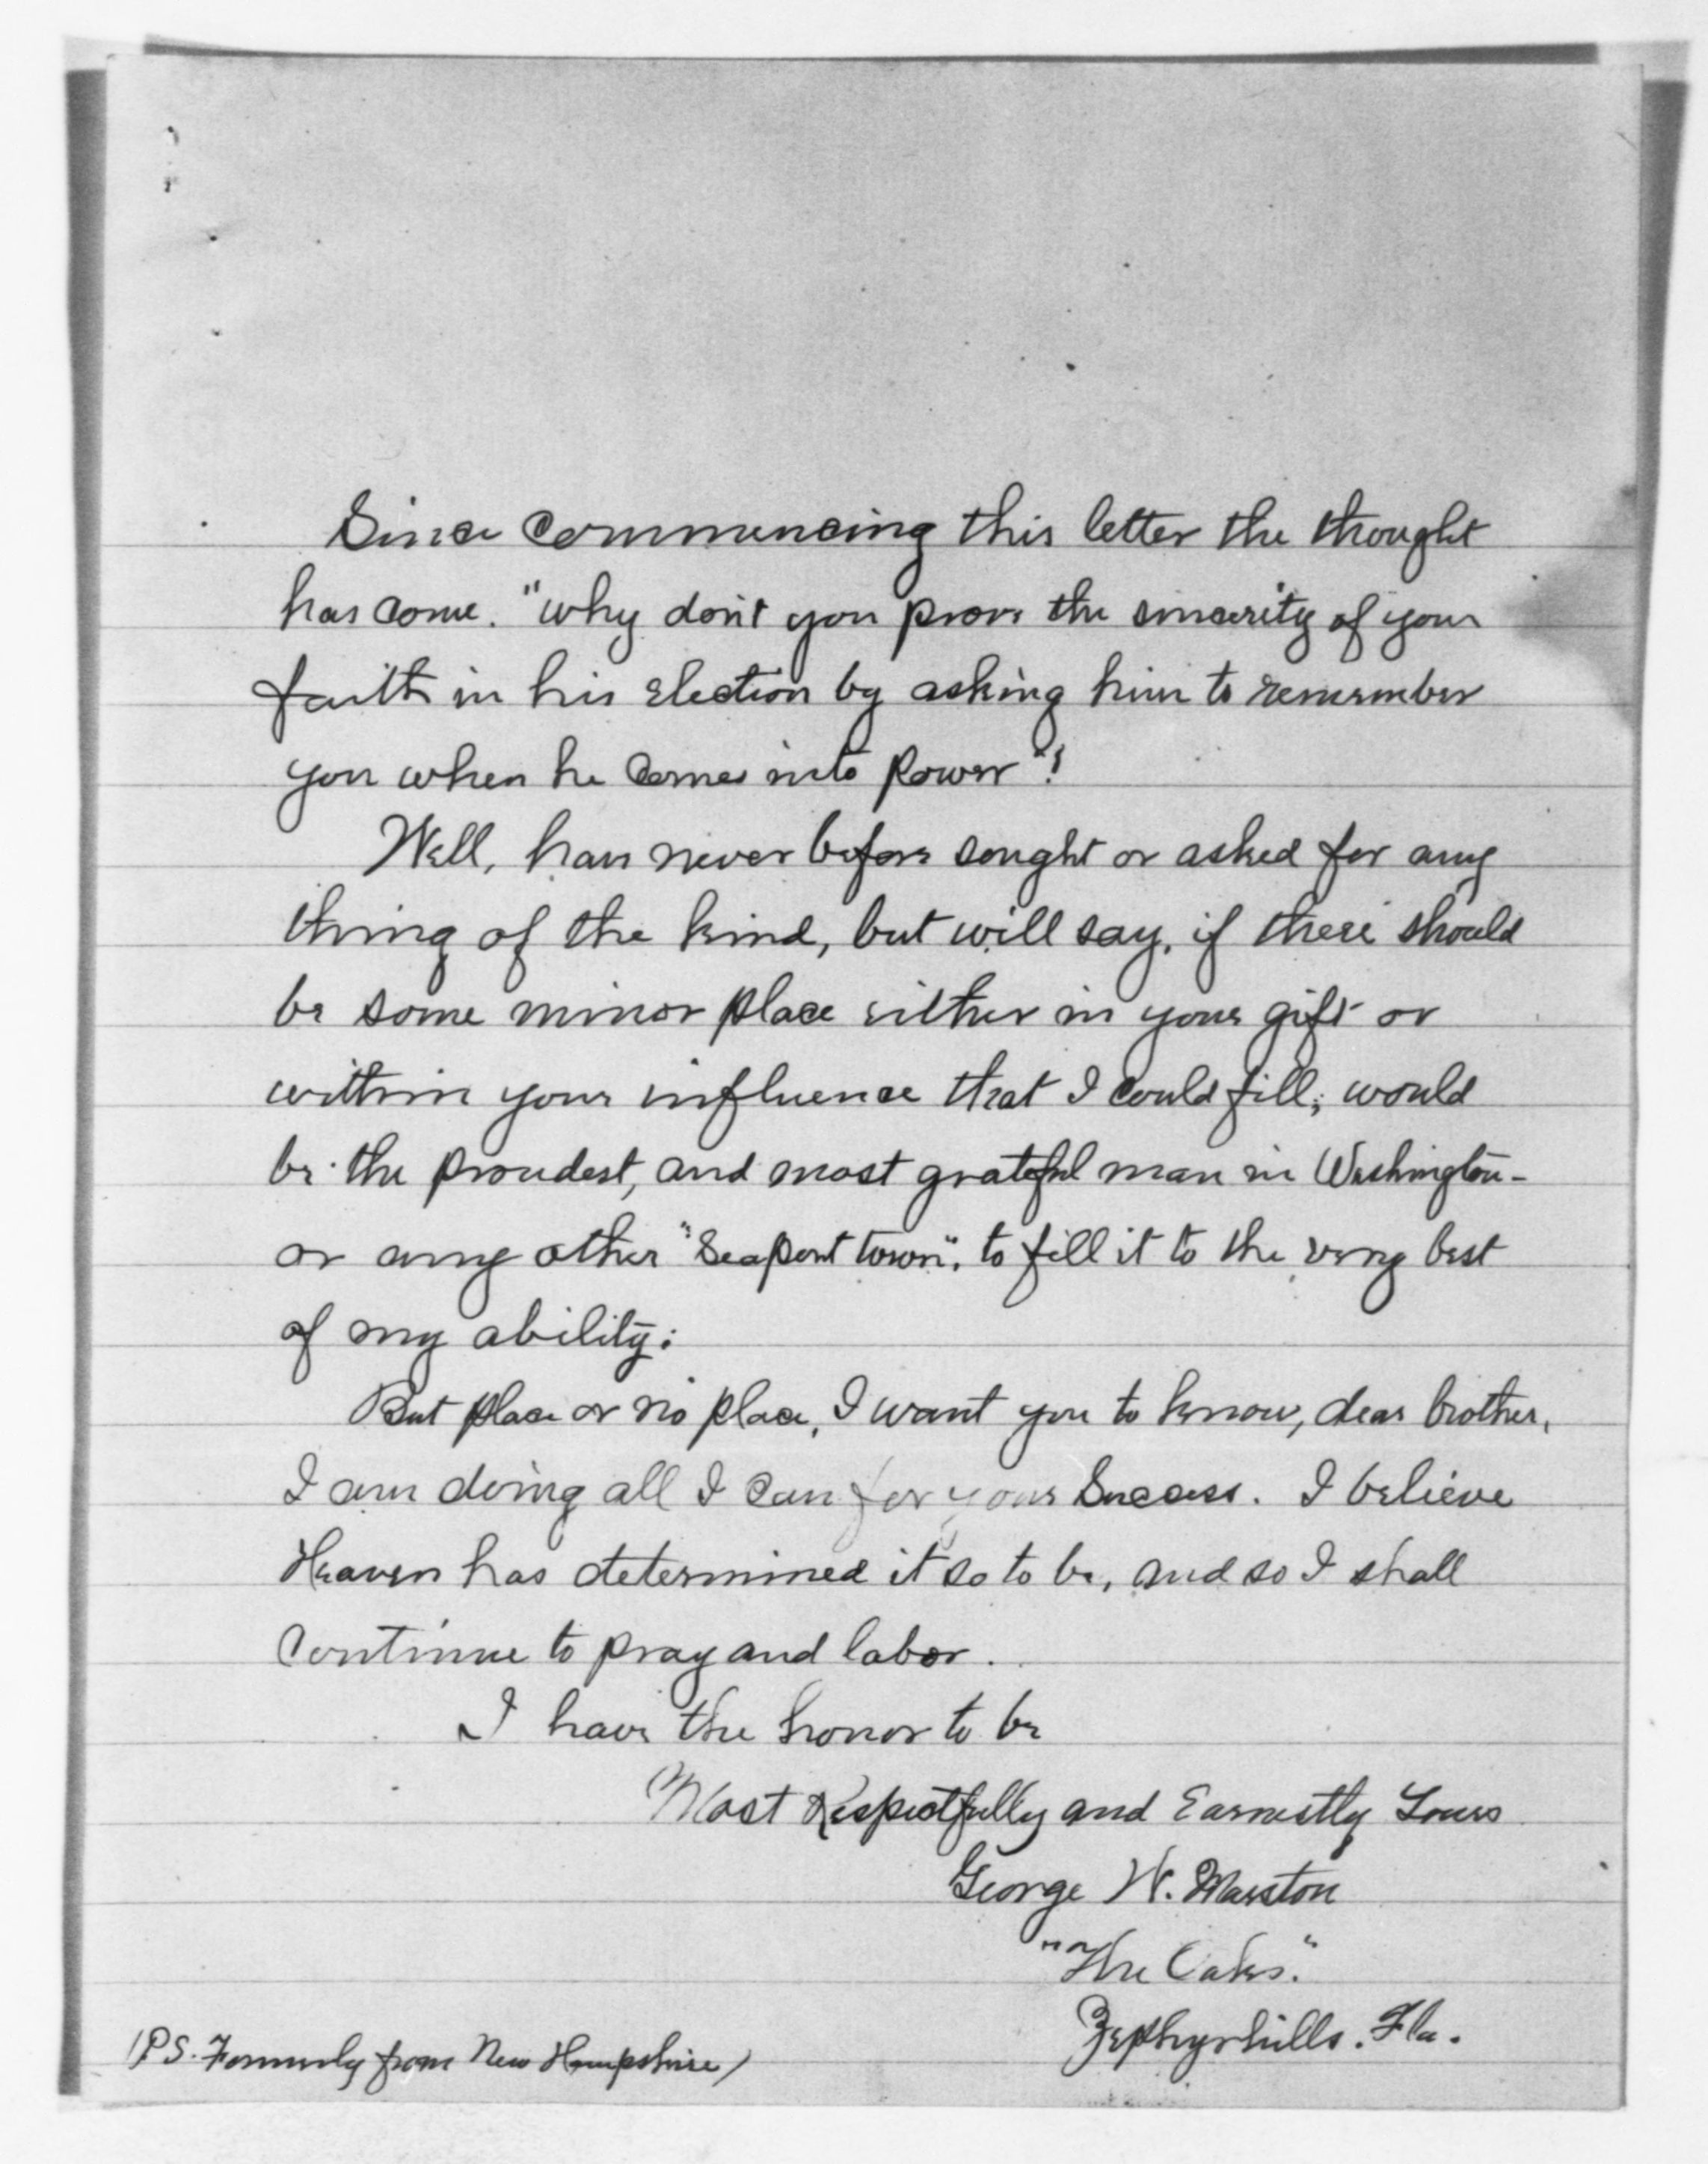 Since commencing this letter the thought
has come. "why don't you prove the sincerity of your
faith in his election by asking him to remember
you when he comes into power"!
Well, have never before sought or asked for any
thing of the kind, but will say, if there should
be some minor place either in your gift or
within your influence that I could fill; would
be the proudest, and most grateful man in Washington-
or any other "Seaport town", to fill it to the very best
of my ability:
But place or no place, I want you to know, dear brother,
I am doing all I can for your Success. I believe
Heaven has determined it so to be, and so I shall
continue to pray and labor.
I have the honor to be
Most Respectfully and Earnestly Yours
George W. Marston
"The Oaks."
Zephyrhills. Fla.
(PS. Formerly from New Hampshire)